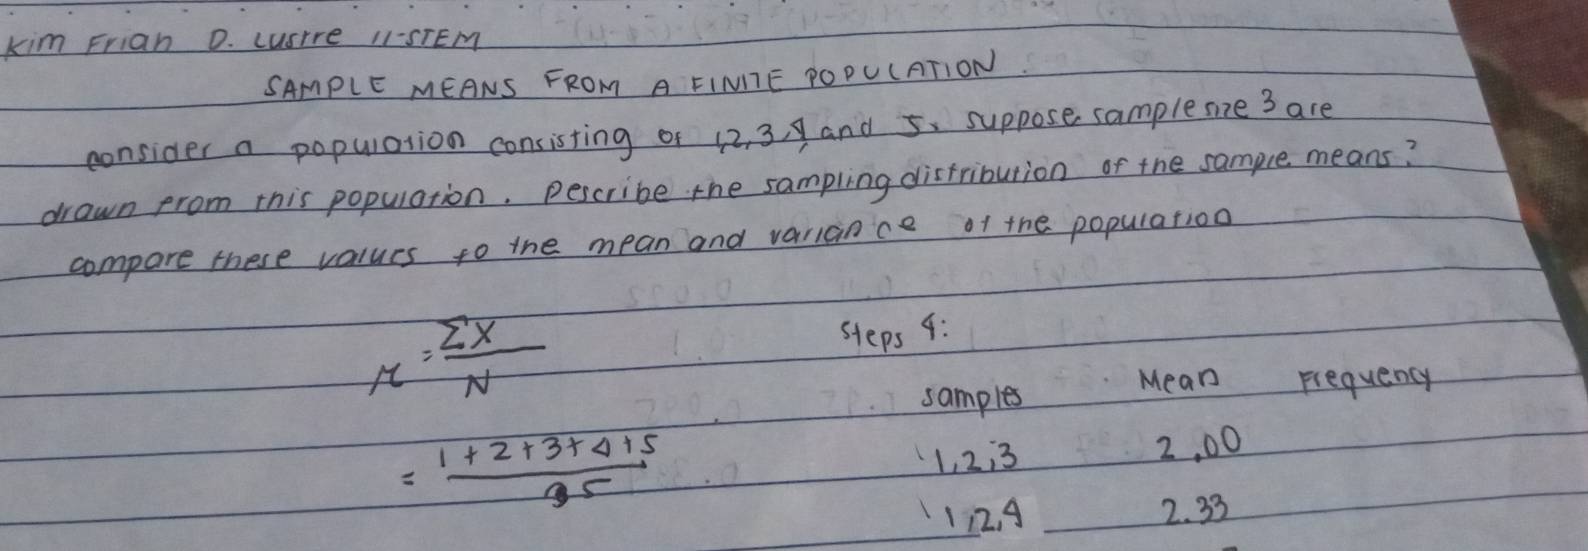 Kim Frian D. Lustre 11-STEM
SAMPLE MEANS FROM A FINITE POPULATION.
consider a population consisting of 1,2,3,4, and 5. suppose sample size 3 are
drawn from this population. Describe the sampling distribution of the sample means?
compare these values to the mean and variance of the population
μ = ΣX / N
Steps 4:
samples Mean Frequency
= 1 + 2 + 3 + 4 + 5 / 5
1,2,3 2.00
1,2,4 2.33